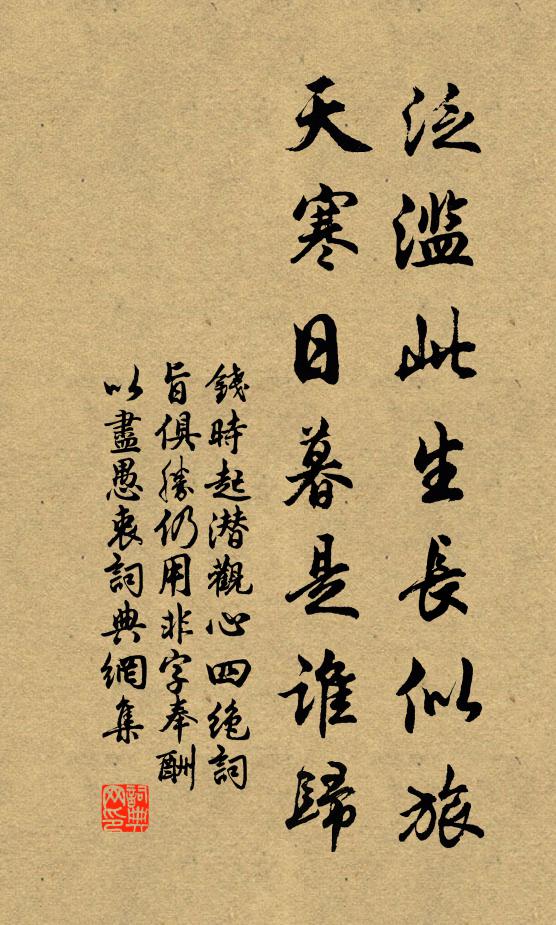 泛濫此生長似旅
天寒日暮是誰歸
錢時起潛觀心四絶詞
旨俱勝仍用非字奉酬
以盡愚衷詞典網集
詞典
網印